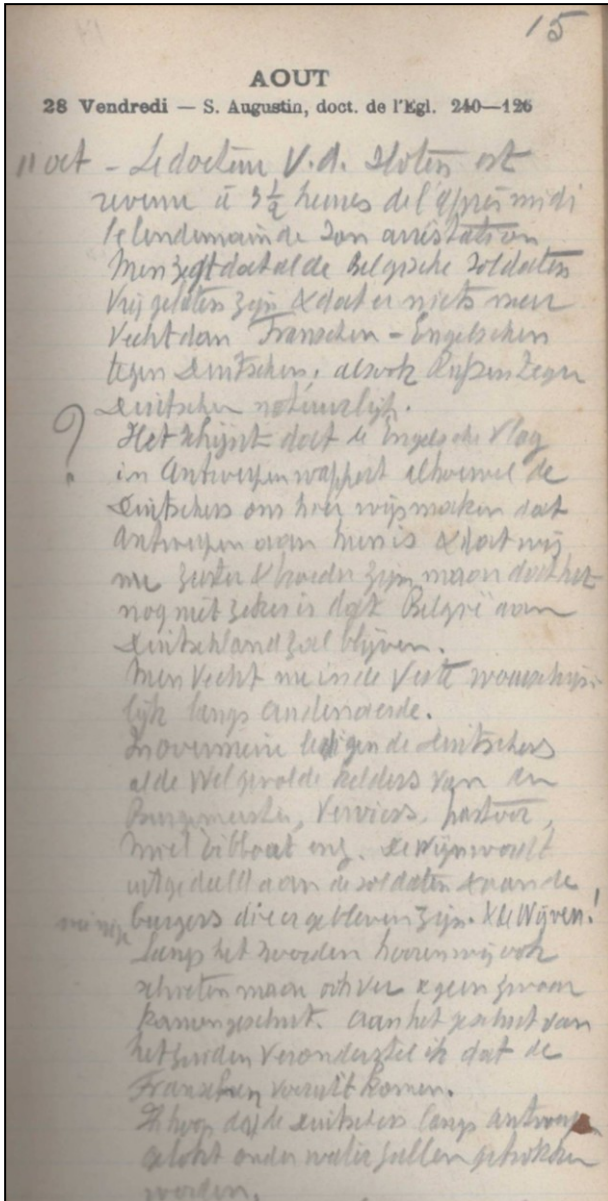 15
AOUT
28 Vendredi — S. Augustin, doct. de l'Egl. 240—126
11 oct - Le docteur V. d. Sloten est
revenu à 3 ½ heures de l'après midi
le lendemain de son arrestation
Men zegt dat al de Belgische soldaten
vrijgelaten zijn & dat er niets meer
vecht dan Franschen - Engelschen
tegen Duitschen, alsook Russen tegen
Duitschen natuurlijk.
? Het schijnt dat de Engelsche vlag
in Antwerpen wappert alhoewel de
Duitschers ons hier wijsmaken dat
Antwerpen aan hen is & dat wij
nu zuster & broeder zijn maar dat het
nog niet zeker is dat België aan
Duitschland zal blijven.
Men vecht nu in de verte waarschijn-
lijk langs Audenaerde.
In overmeire ledigen de Duitschers
al de welgevulde kelders van den
Burgemeester, Verviers, pastoor,
enz. De wijn wordt
uitgedeeld aan de soldaten & aan de
burgers die er gebleven zijn. & de Wijven!
Langs het noorden hooren wij ook
schieten maar och ver & geen zwaar
kanongeschut. Aan het geschut van
het zuiden veronderstel ik dat de
Franschen vooruit komen.
Ik hoop dat de Duitschers langs
gelokt onder water zullen getrokken
worden.